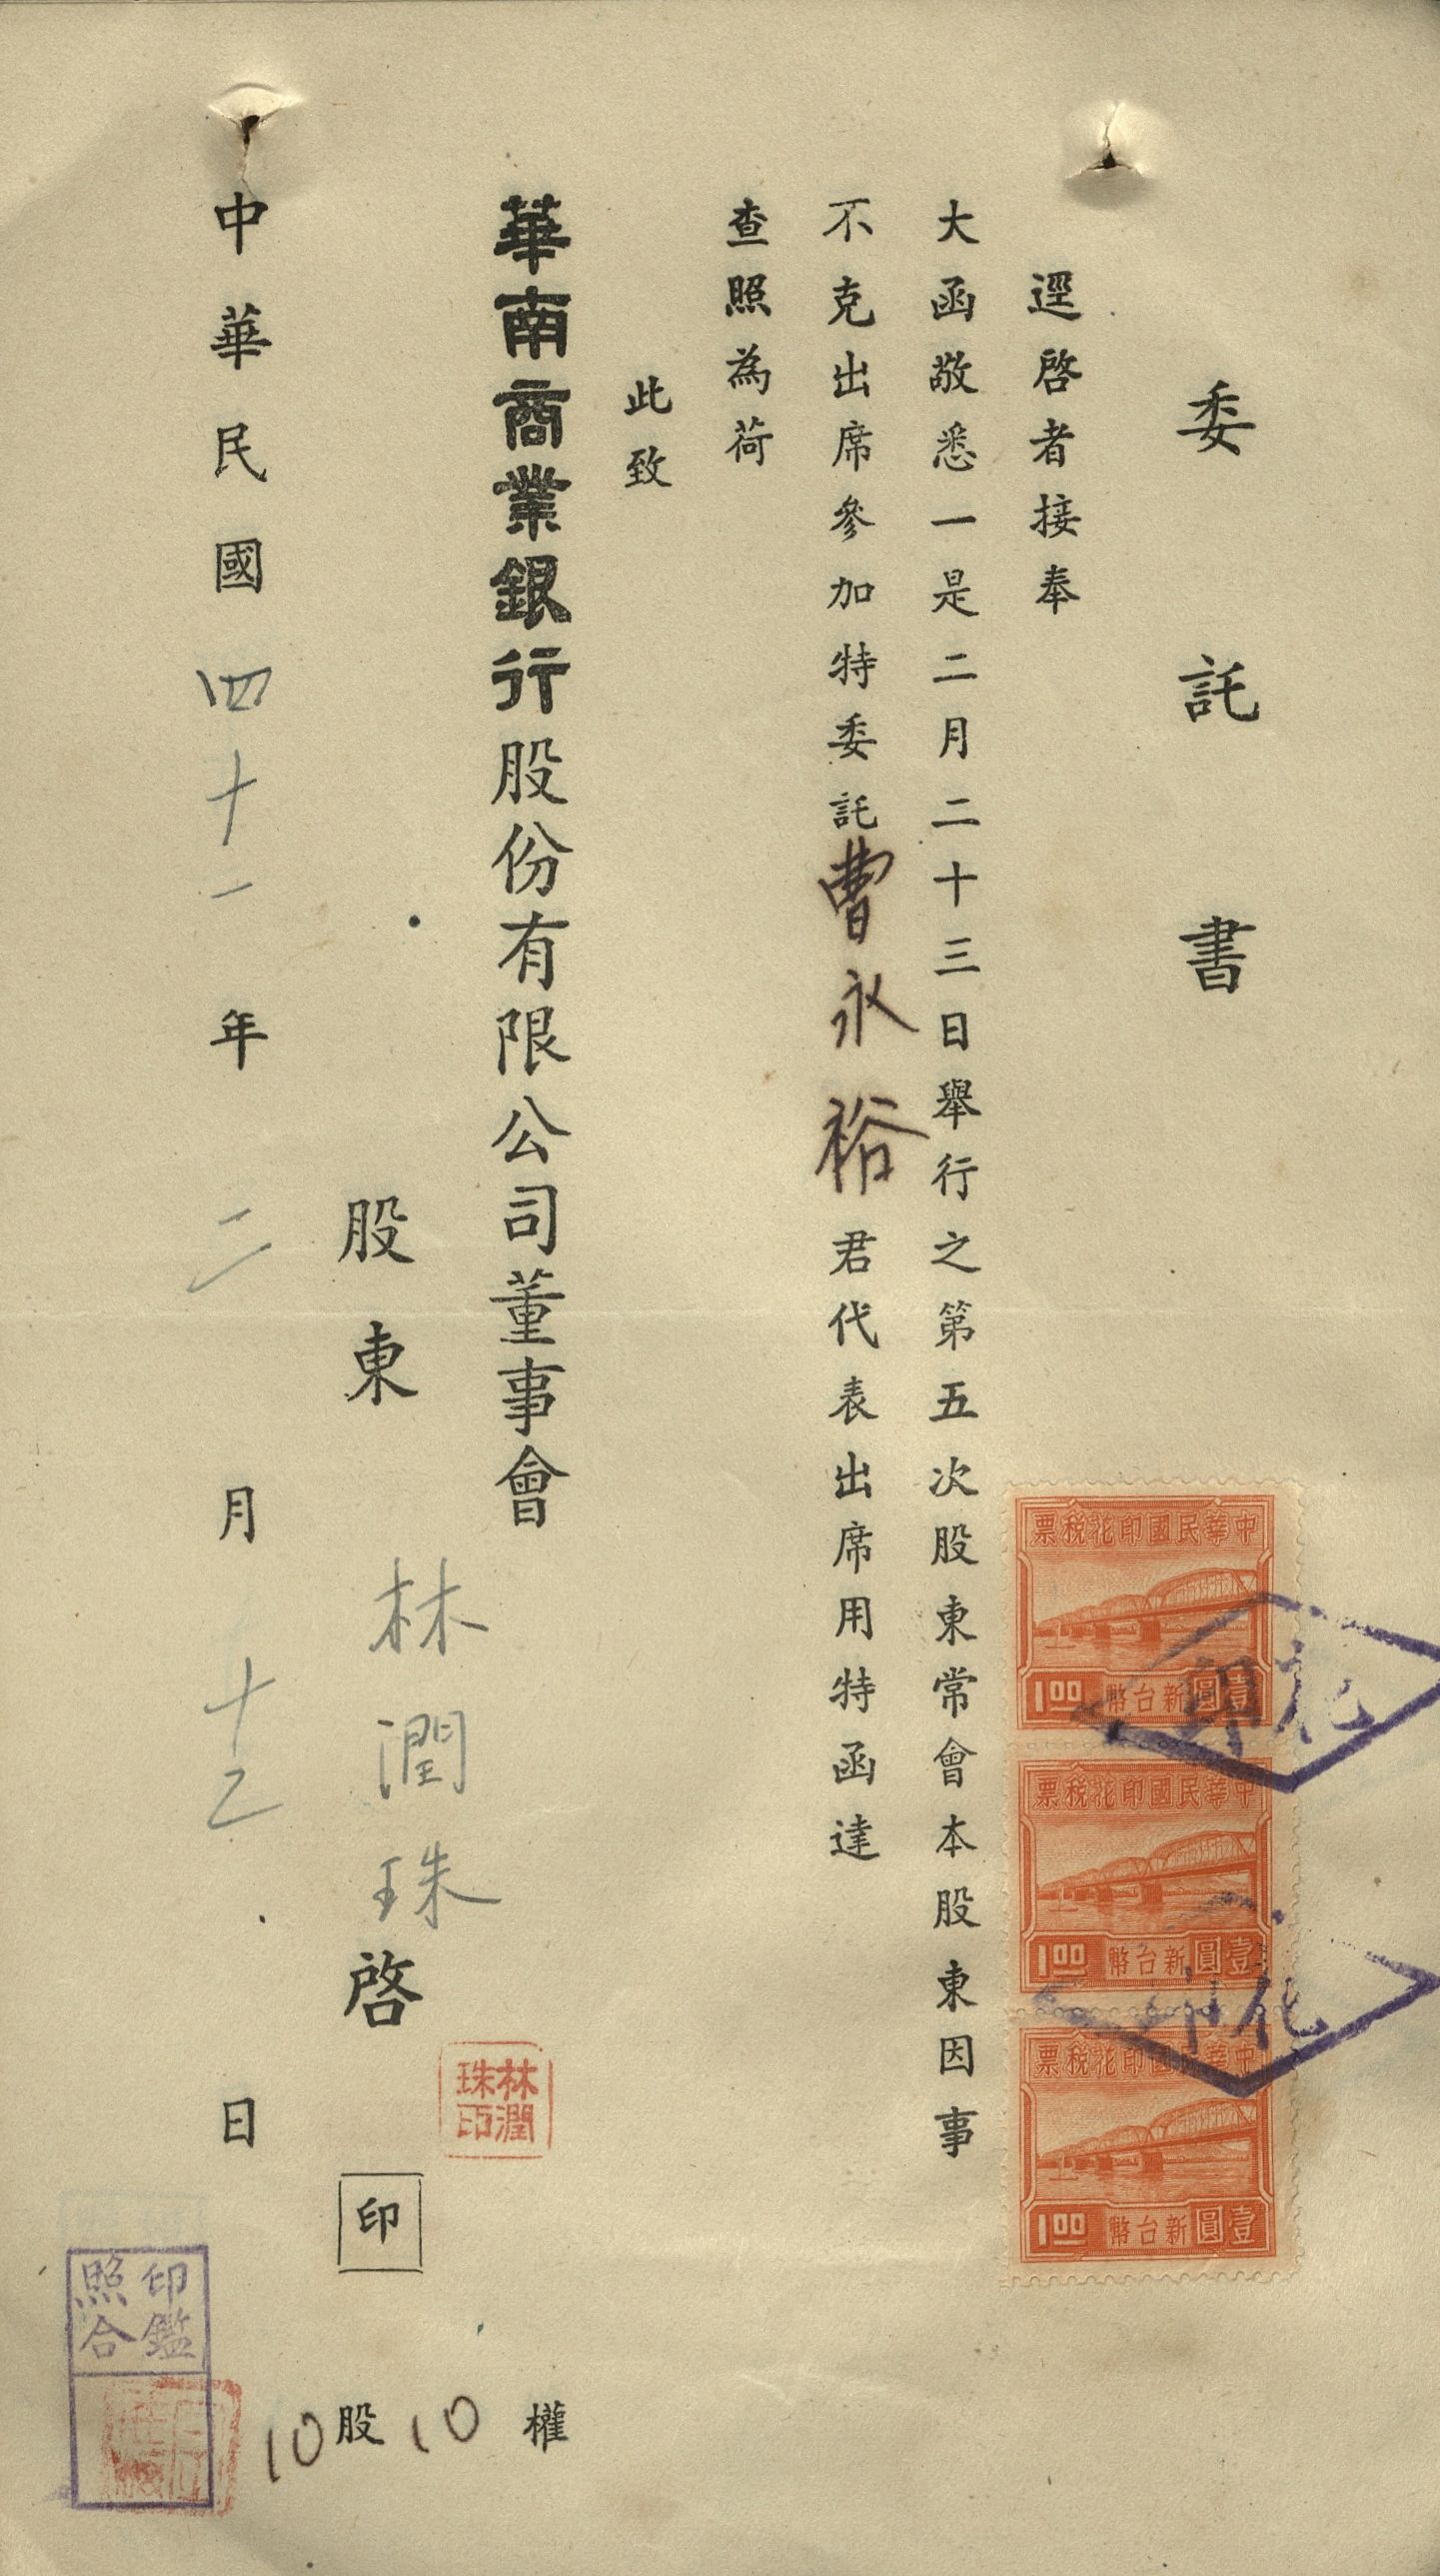 委託書
逕啓者接奉
大函敬悉一是二月二十三日舉行之第五次股東常會本股東因事
不克出席參加特委託曹永裕君代表出席用特函達
查照為荷
此致
華南商業銀行股份有限公司董事會
股東林潤珠啓
林潤珠印
印
10股10權
中華民國四十一年二月十乙日
中華民國印花稅票
1.00 新台幣壹圓
中華民國印花稅票
1.00 新台幣壹圓
中華民國印花稅票
1.00 新台幣壹圓
印花
印花
印鑑
照合